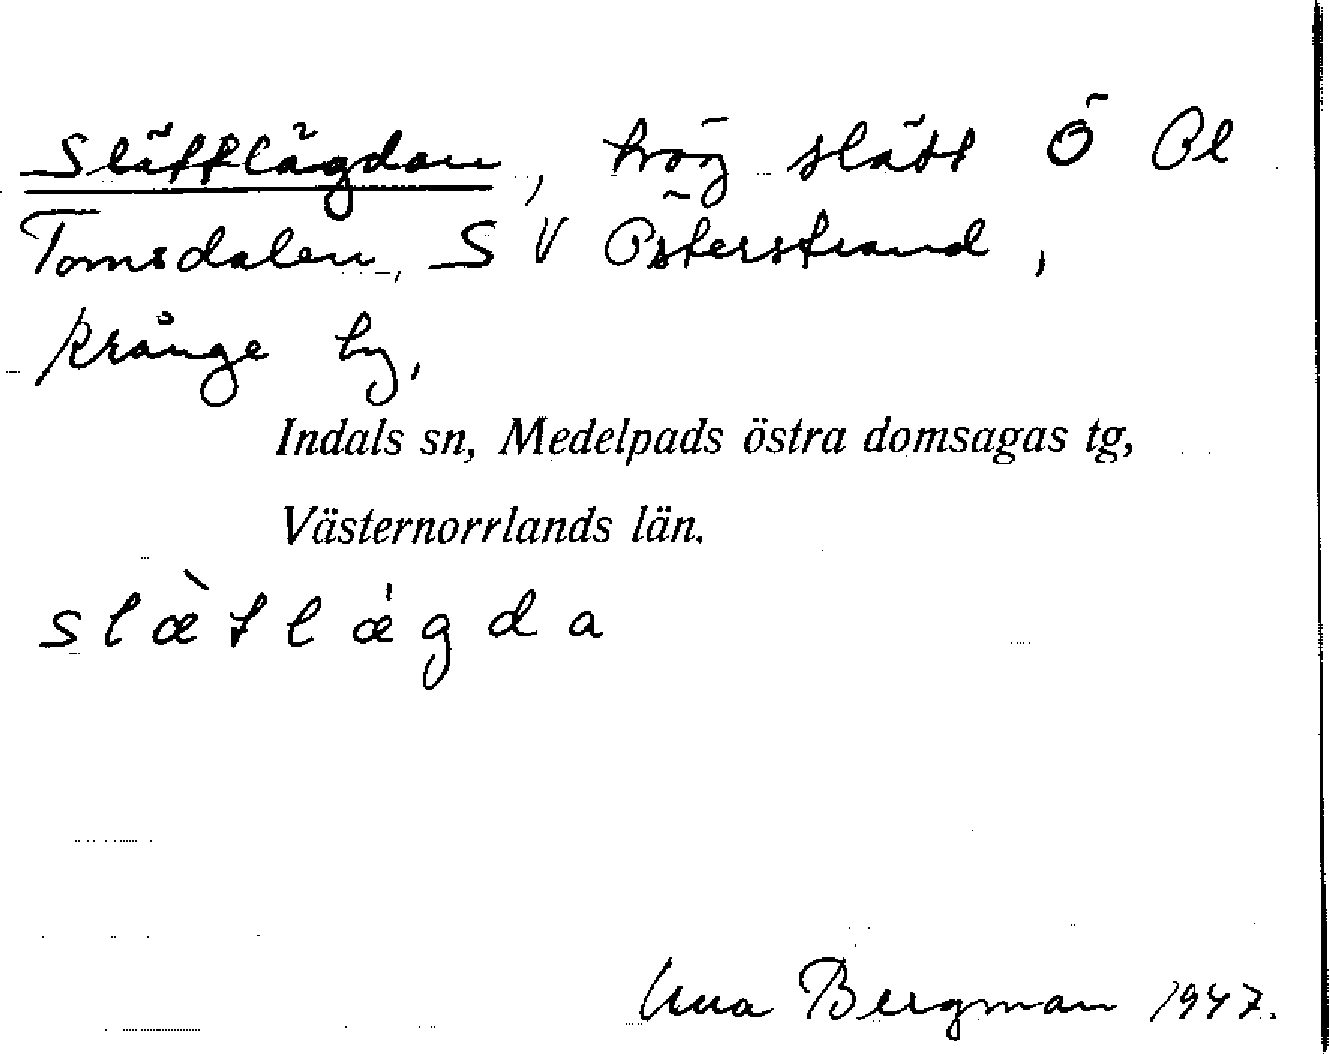 Slättlägdan, hög slätt Ö Bl
Tomsdalen, SV Österstrand,
Krånge by.
Indals sn, Medelpads östra domsagas tg,
Västernorrlands län.
slæ̀tlǽgda
Una Bergman 1947.